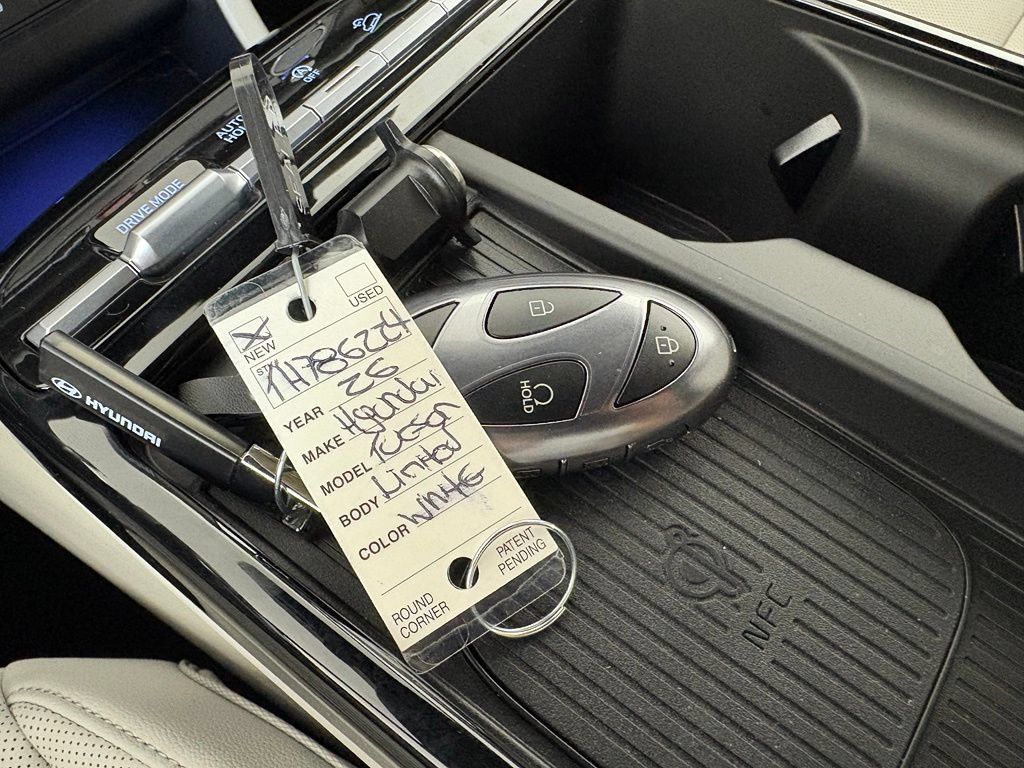 OFF
AUTO
HOLD
DRIVE MODE
HYUNDAI
USED
NEW
STK TH786224
YEAR 25
MAKE Hyundai
MODEL Tucson
BODY Limited
COLOR White
PATENT
PENDING
ROUND
CORNER
HOLD
NFC